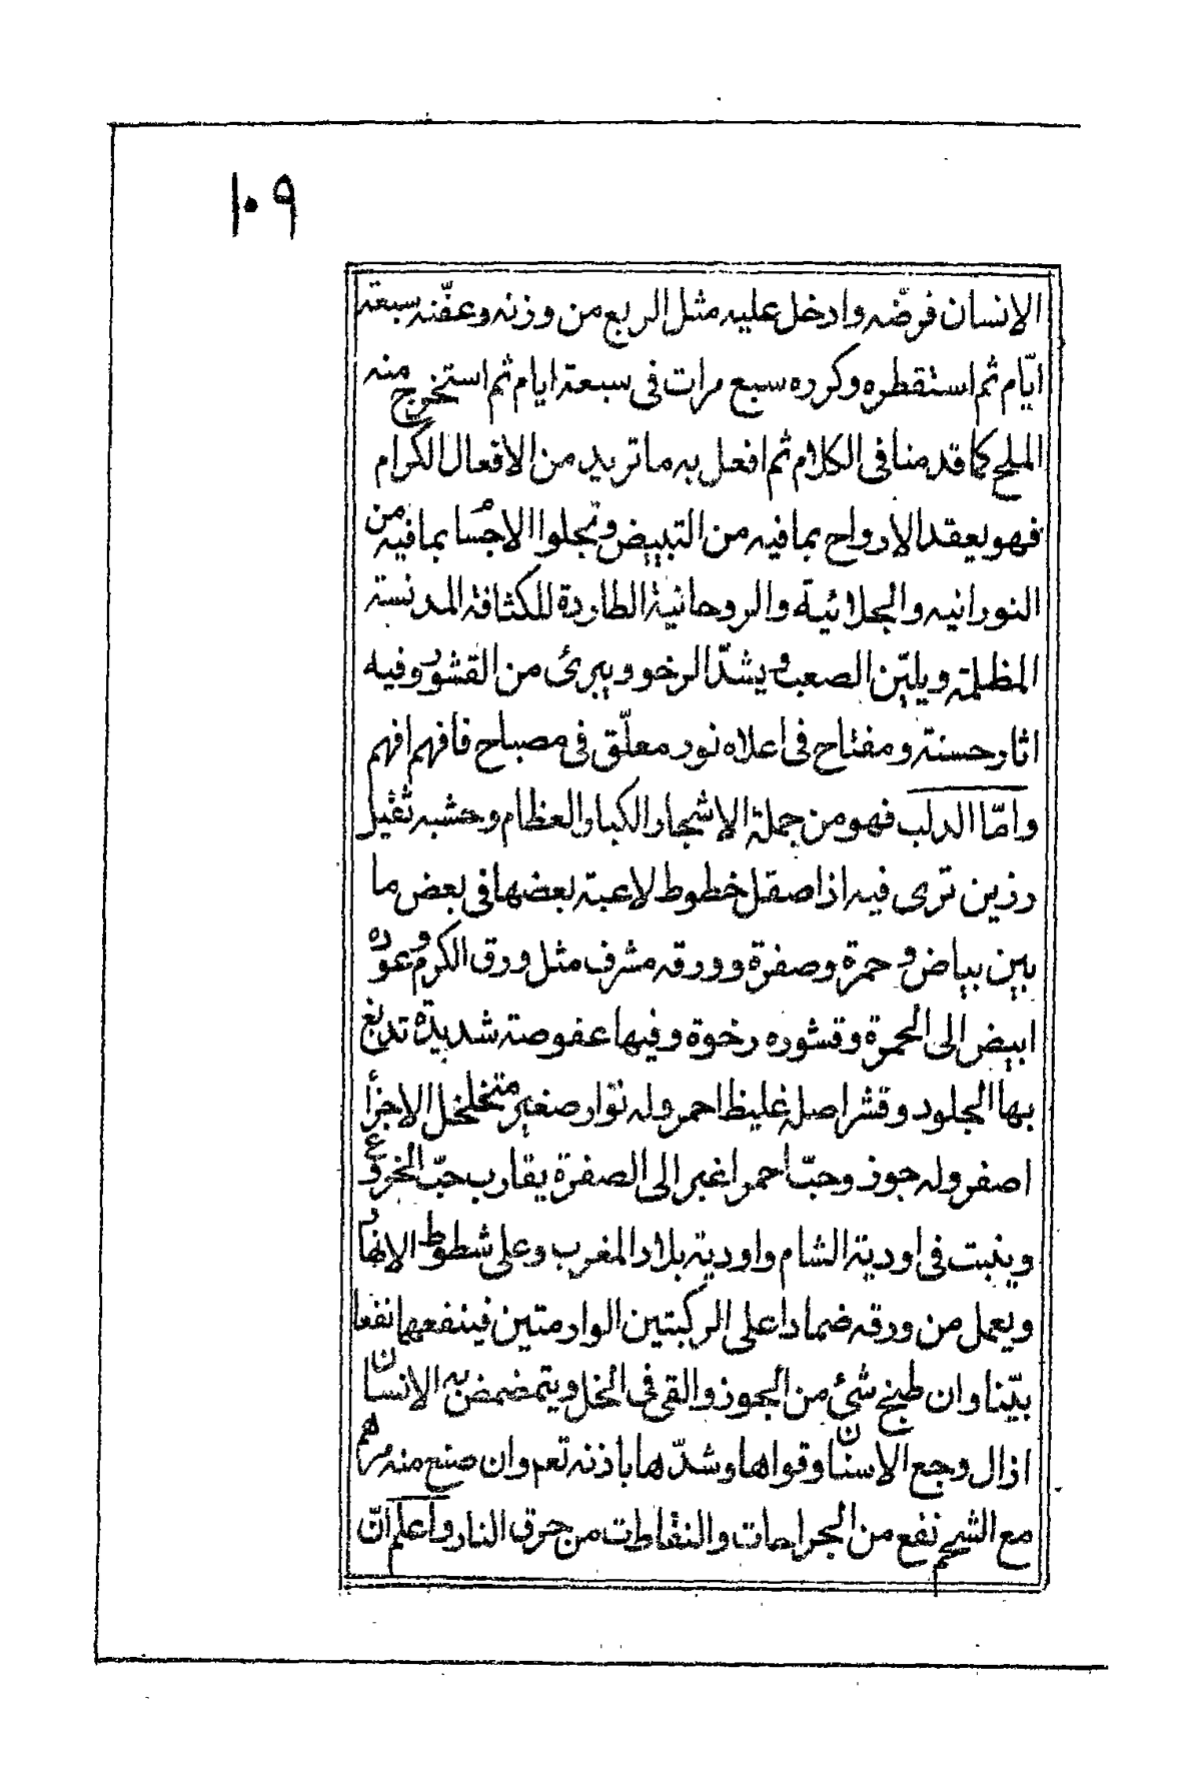 ١٠٩
الانسان فرضّه وادخل عليه مثل الربع من وزنه وعفّنه سبعة
ايّام ثم استقطره وكرره سبع مرات فى سبعة ايام ثم استخرج منه
الملح كما قدمنا فى الكلام ثم افعل به ما تريد من الافعال الكرام
فهو يعقد الارواح بما فيه من التبييض وتجلوا الاجسام بما فيه من
النورانيه والجلائية والروحانية الطاردة للكثافة المدنسة
المظلمة ويليّن الصعب ويشدّ الرخو ويبرئ من القشور وفيه
اثار حسنة ومفتاح فى اعلاه نور معلّق فى مصباح فافهم افهم
وامّا الدلب فهو من جملة الاشجار الكبار العظام وخشبه ثقيل
رزين ترى فيه اذا صقل خطوط لاعبة بعضها فى بعض ما
بين بياض وحمرة وصفرة وورقه مشرف مثل ورق الكرم وعوده
ابيض الى الحمرة وقشوره رخوة وفيها عفوصة شديدة تدبغ
بها الجلود وقشر اصله غليظ احمر وله نوّار صغير متخلخل الاجزأ
اصفر وله جوز وحبّ احمر اغبر الى الصفرة يقارب حبّ الخروع
وينبت فى اودية الشام واودية بلاد المغرب وعلى شطوط الانهار
ويعمل من ورقه ضمادا على الركبتين الوارمتين فينفعهما نفعا
بيّنا وان طبخ شئ من الجوز والقى فى الخل ويتمضمض به الانسان
ازال وجع الاسنان وقواها وشدّها باذنه تعم وان صنع منه مرهم
مع الشحم نفع من الجراحات والنفاطات من حرق النار واعلم انّ